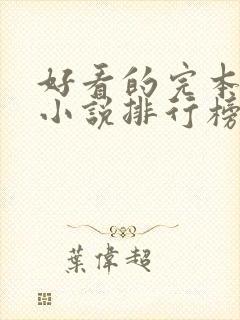 好看的完本
小說排行榜
葉偉超